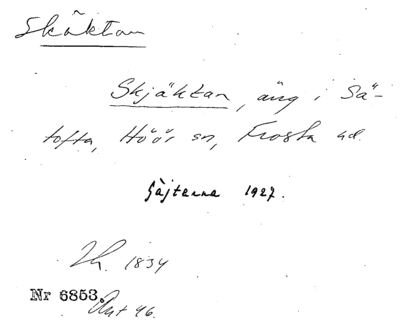 Skäktan
Skjäktan, äng i Sä-
tofta, Höör sn, Frosta hd.
Gäjtanna 1927.
1834
Nr 6853.
Ant 46.